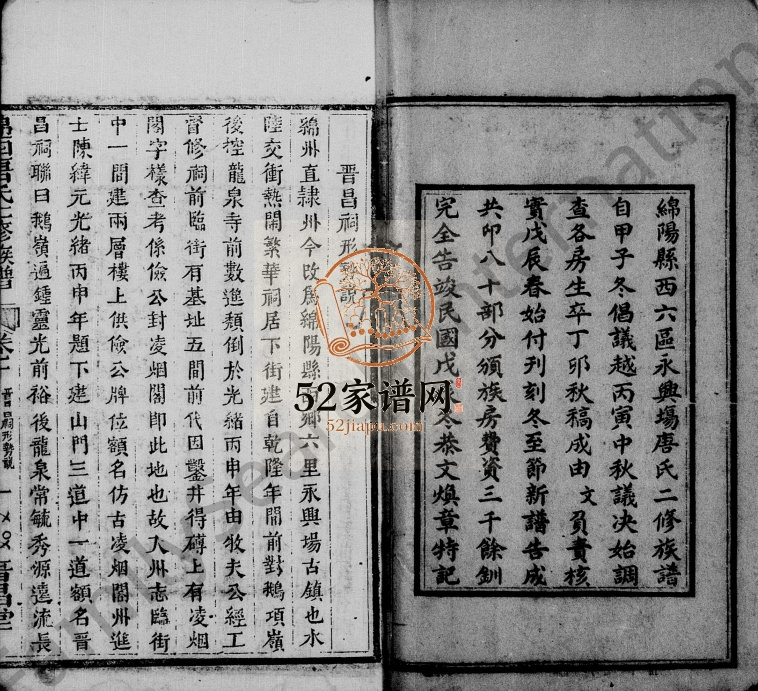 綿陽縣西六區永興塲唐氏二修族譜
自甲子冬倡議越丙寅中秋議决始調
查各房生卒丁卯秋稿成由文負責核
實戊辰春始付刊刻冬至節新譜告成
共印八十部分頒族房費資三千餘釧
完全告竣民國戊冬恭文煥章特記
晋昌祠形說
綿州直隷州今改爲綿陽縣鄉六里永興場古鎮也水
陸交衝熱閙繁華祠居下街建自乾隆年間前對鵝項嶺
後控龍泉寺前數進頽倒於光緒丙申年由牧夫公經工
督修祠前臨街有基址五間前代因鑿井得磚上有凌烟
閣字樣查考係儉公封凌烟閣即此地也故入州志臨街
中一間建兩層樓上供儉公牌位額名仿古凌烟閣州進
士陳緯元光緒丙申年題下建山門三道中一道額名晋
昌祠聯曰鵝嶺過鍾靈光前裕後龍泉常毓秀源遠流長
唐氏二修族譜
晋昌祠形勢說
晋昌堂
52家谱网
52jiapu.com
FamilySearch International